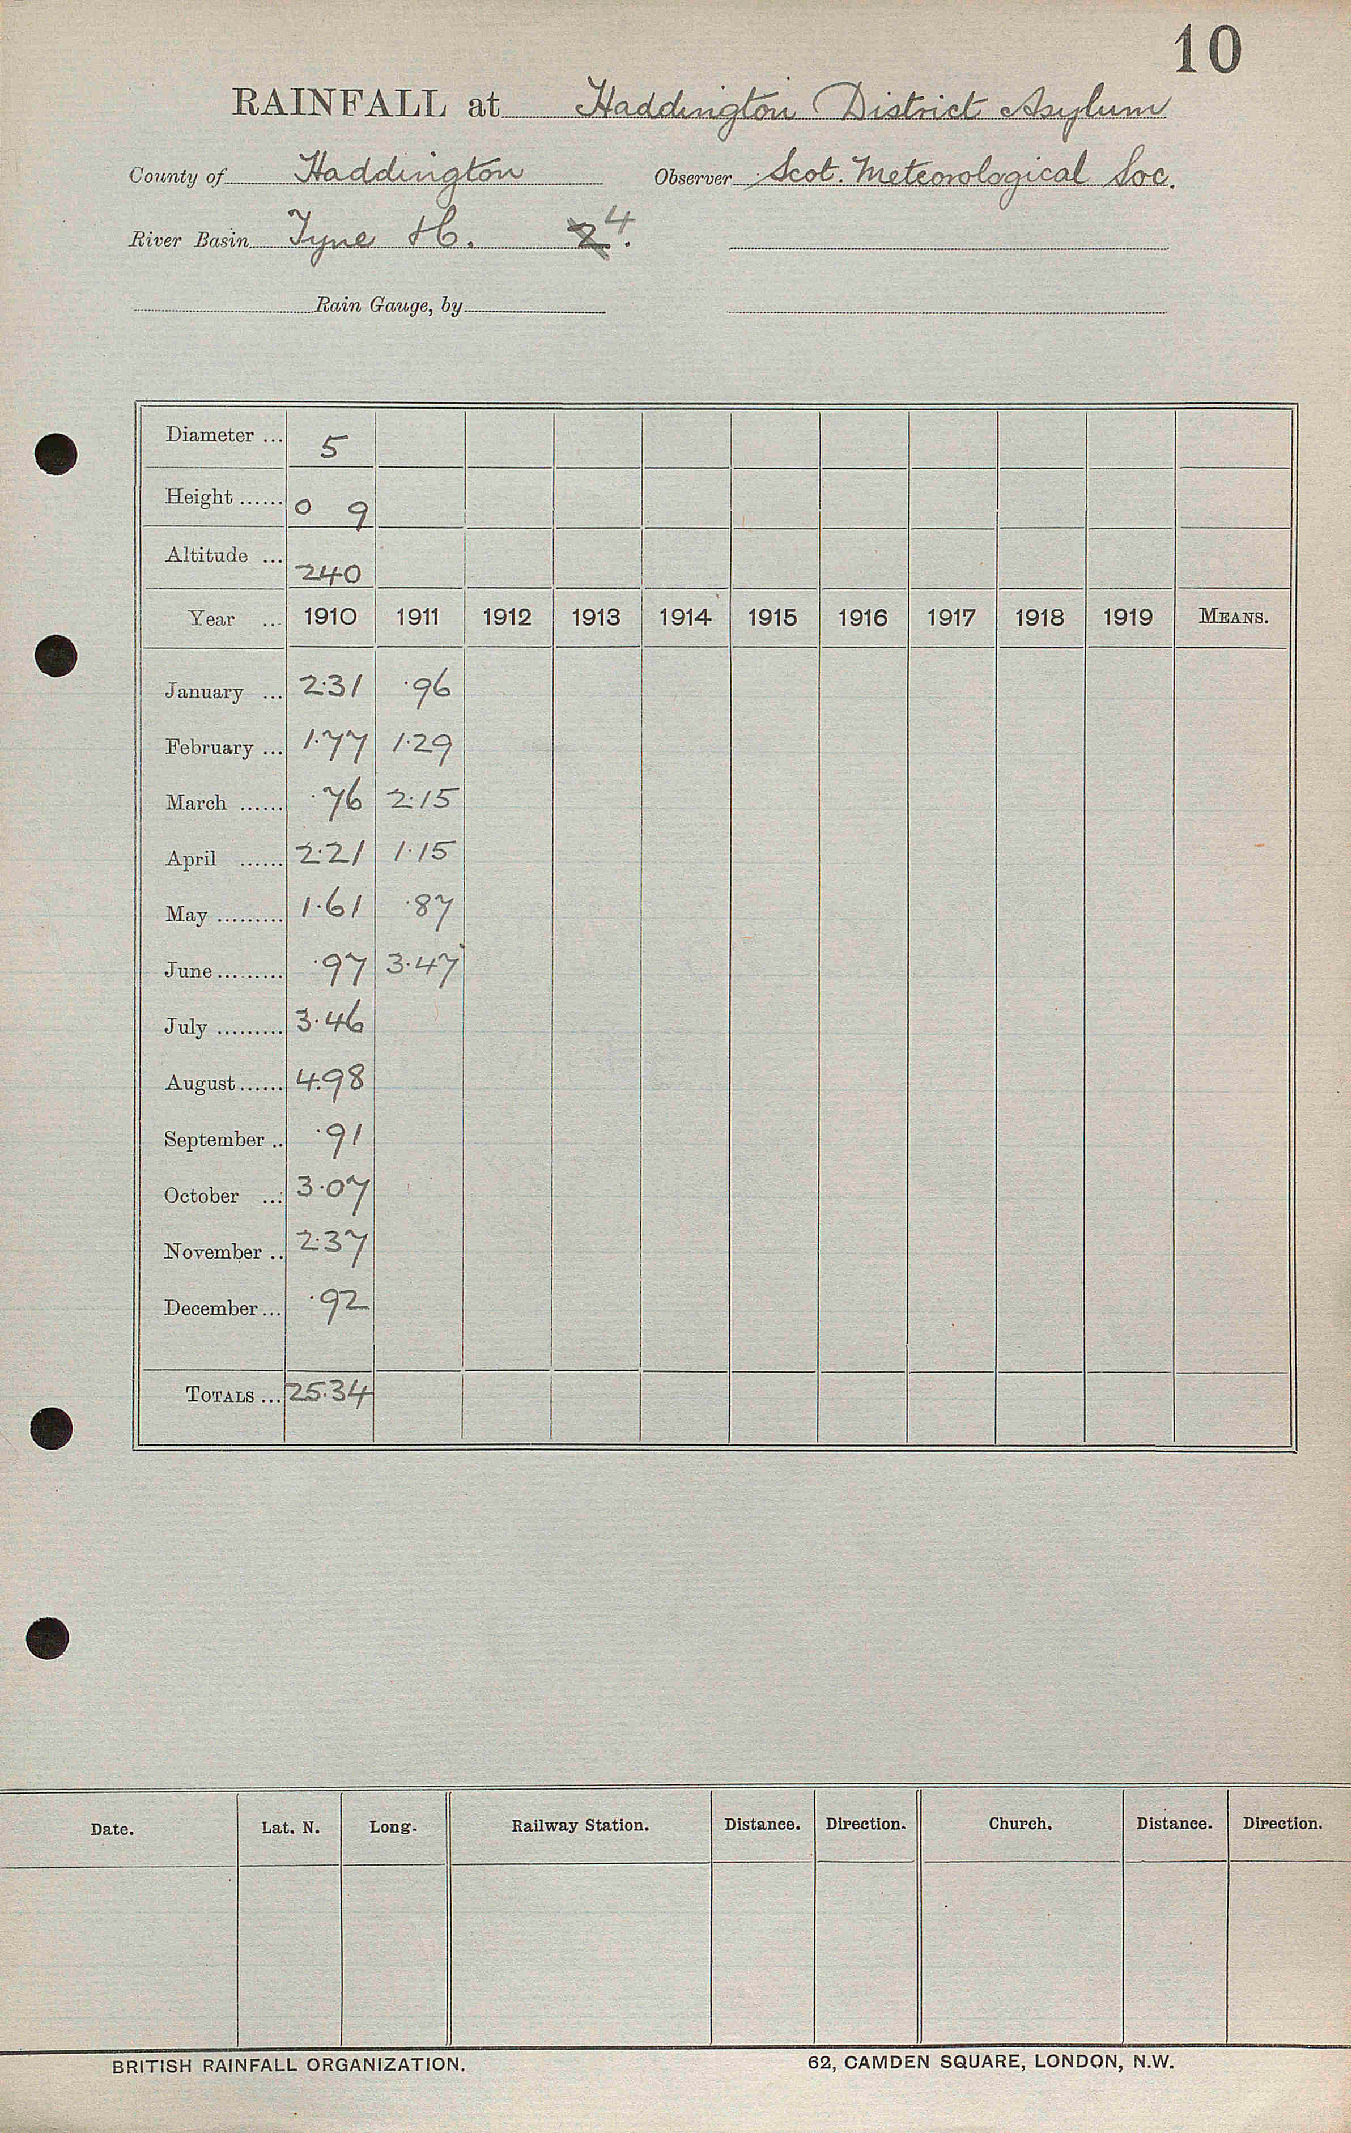 10
RAINFALL at Haddington District Asylum
County of Haddington Observer Scot. Meteorological Soc.
River Basin Tyne H. 2 4.
Rain Gauge, by
Diameter ... 5
Height ...... 0 9
Altitude ... 240
Year ... 1910 1911 1912 1913 1914 1915 1916 1917 1918 1919 MEANS.
January ... 2.31 .96
February ... 1.77 1.29
March ...... .76 2.15
April ...... 2.21 1.15
May ......... 1.61 .87
June ......... .97 3.47
July ......... 3.46
August ...... 4.98
September .. .91
October ... 3.07
November .. 2.37
December ... .92
TOTALS ... 25.34
Date. Lat. N. Long. Railway Station. Distance. Direction. Church. Distance. Direction.
BRITISH RAINFALL ORGANIZATION. 62, CAMDEN SQUARE, LONDON, N.W.